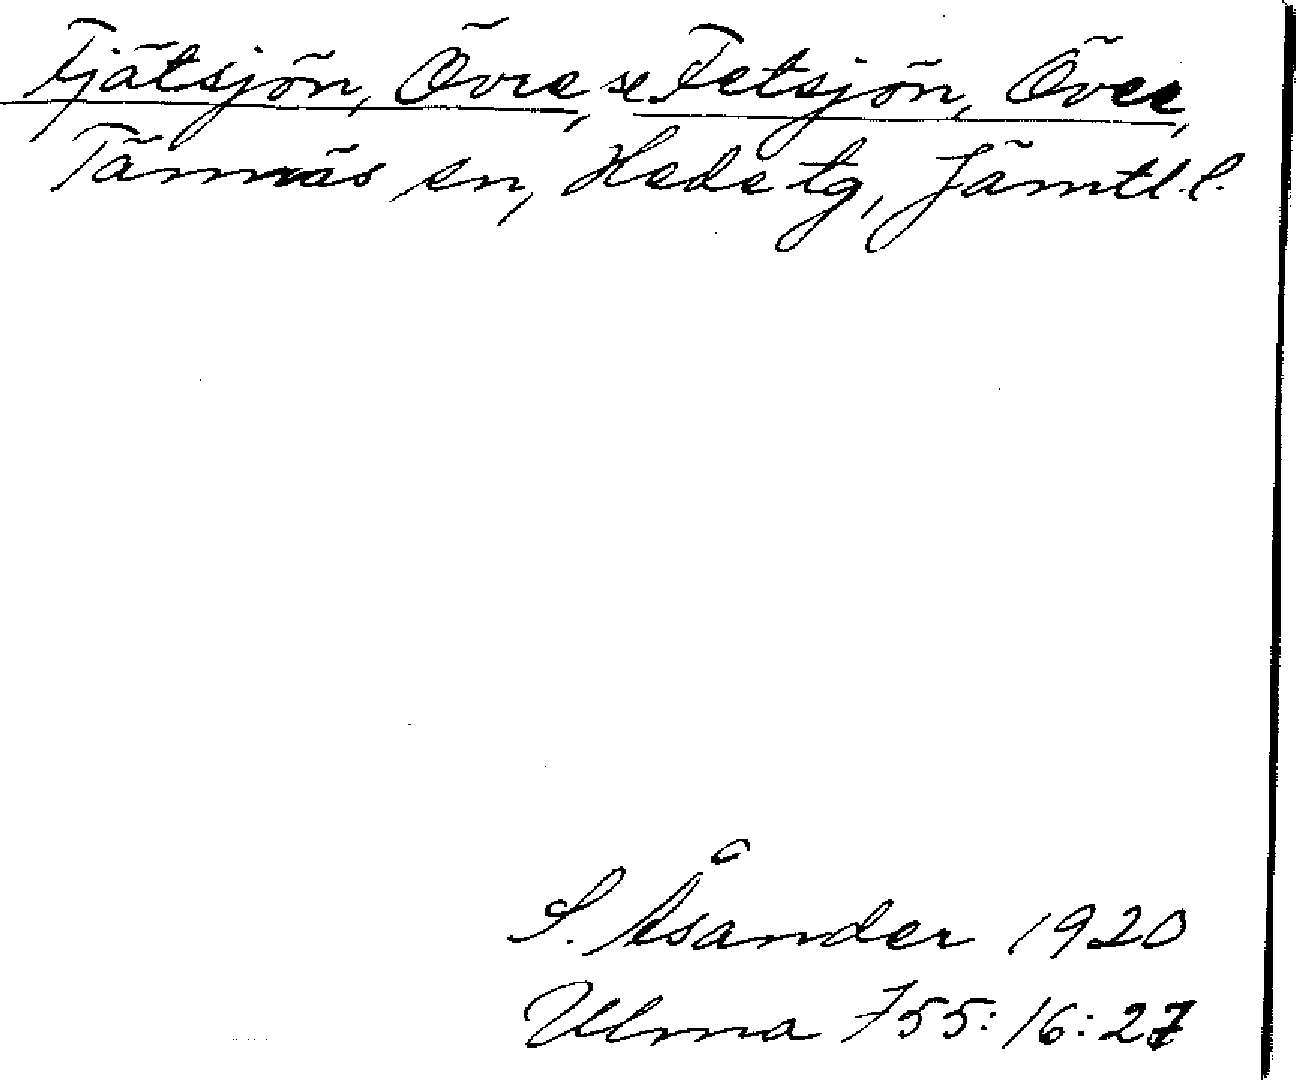 Fjätsjön, Övre, se Fetsjön, Övre,
Tännäs sn, Hede tg, Jämtl. l.
S. Åsander 1920
Ulma 755:16:27